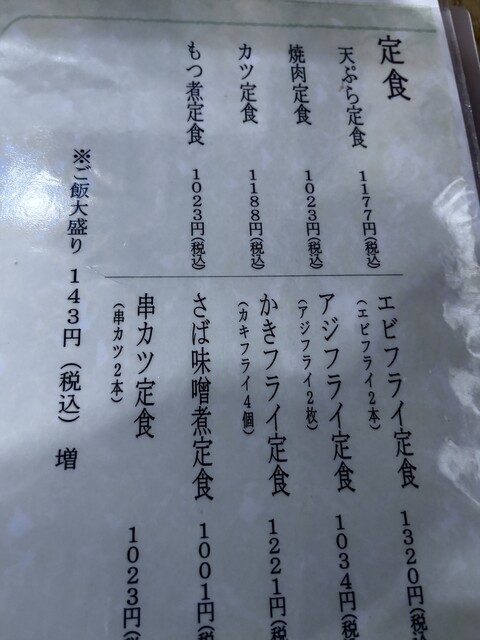 定食
天ぷら定食 1177円(税込)
焼肉定食 1023円(税込)
カツ定食 1188円(税込)
もつ煮定食 1023円(税込)
エビフライ定食 1320円(税
(エビフライ2本)
アジフライ定食 1034円(税
(アジフライ2枚)
かきフライ定食 1221円(税
(カキフライ4個)
さば味噌煮定食 1001円(税
串カツ定食 1023円(税
(串カツ2本)
※ご飯大盛り 143円(税込)増